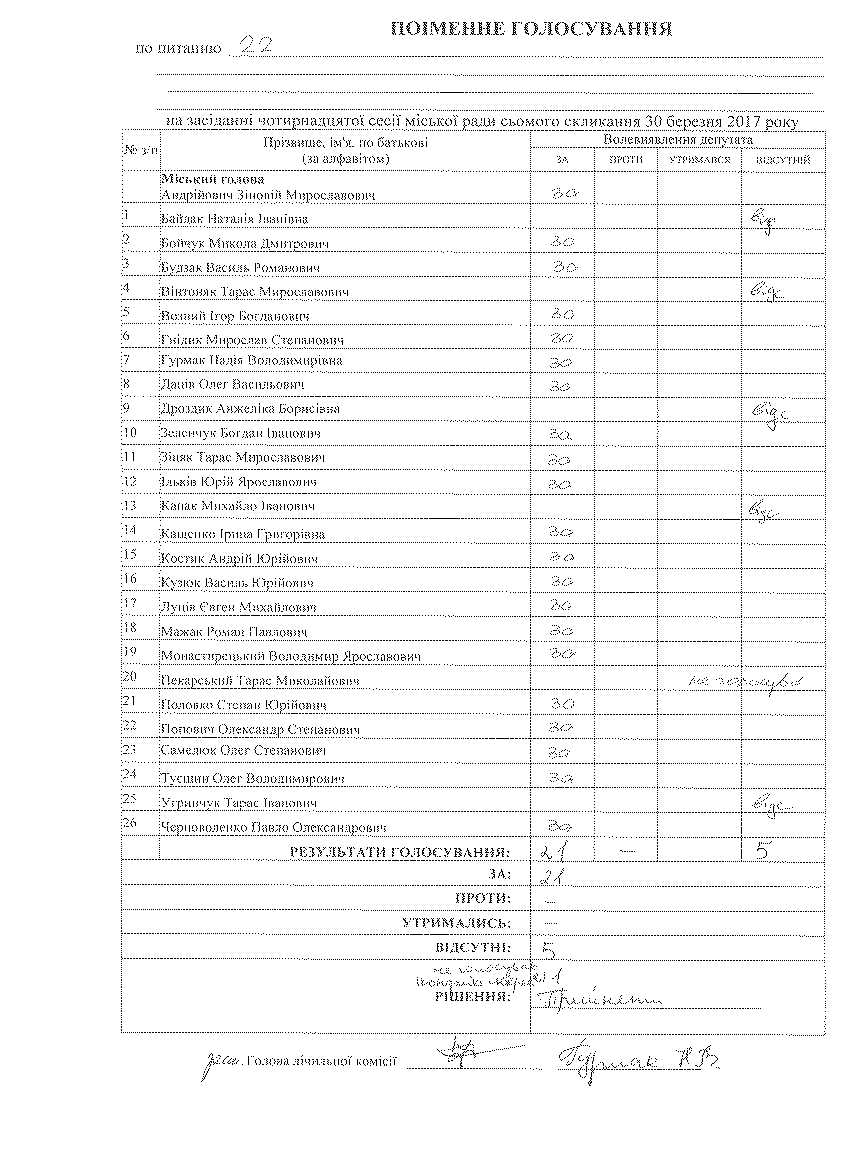 ПОІМЕННЕ ГОЛОСУВАННЯ
по питанню 22
на засіданні чотирнадцятої сесії міської ради сьомого скликання 30 березня 2017 року
№ з/п Прізвище, ім'я, по батькові (за алфавітом) Волевиявлення депутата
ЗА ПРОТИ УТРИМАВСЯ ВІДСУТНІЙ
Міський голова
Андрійович Зіновій Мирославович за
1 Байдак Наталія Іванівна від
2 Бойчук Микола Дмитрович за
3 Будзак Василь Романович за
4 Вінтоняк Тарас Мирославович відс
5 Возний Ігор Богданович за
6 Гнідик Мирослав Степанович за
7 Гурмак Надія Володимирівна за
8 Даців Олег Васильович за
9 Дроздик Анжеліка Борисівна відс
10 Зеленчук Богдан Іванович за
11 Зіняк Тарас Мирославович за
12 Ільків Юрій Ярославович за
13 Капак Михайло Іванович відс
14 Кащенко Ірина Григорівна за
15 Костик Андрій Юрійович за
16 Кузюк Василь Юрійович за
17 Луців Євген Михайлович за
18 Мажак Роман Павлович за
19 Монастирецький Володимир Ярославович за
20 Пекарський Тарас Миколайович не голосував
21 Половко Степан Юрійович за
22 Попович Олександр Степанович за
23 Самелюк Олег Степанович за
24 Тусшин Олег Володимирович за
25 Угринчук Тарас Іванович відс
26 Черноволенко Павло Олександрович за
РЕЗУЛЬТАТИ ГОЛОСУВАННЯ: 21 – 5
ЗА: 21
ПРОТИ: –
УТРИМАЛИСЬ: –
ВІДСУТНІ: 5
не голосував
1
РІШЕННЯ: Прийнято
Голова лічильної комісії Гурмак Н.В.